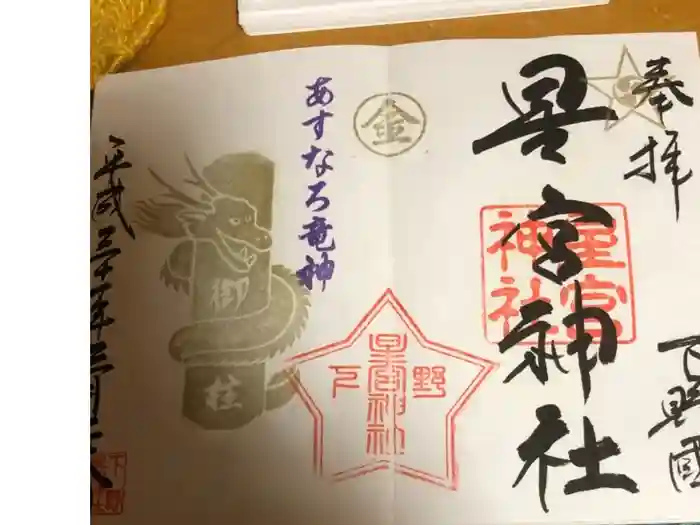 奉拝
下野國
星宮神社
星宮
神社
金
下野
星宮神社
あすなろ竜神
御柱
平成三十一年三月